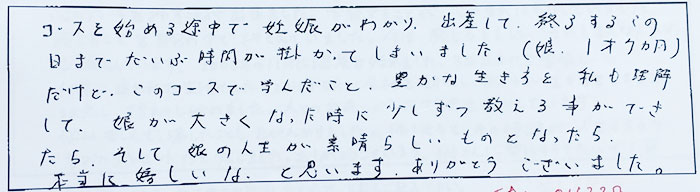 コースを始める途中で妊娠がわかり、出産して、終了するこの
日までだいぶ時間が掛かってしまいました。(娘、1才9カ月)
だけど、このコースで学んだこと、豊かな生き方を私も理解
して、娘が大きくなった時に少しずつ教える事ができ
たら、そして娘の人生が素晴らしいものとなったら、
本当に嬉しいな、と思います。ありがとうございました。